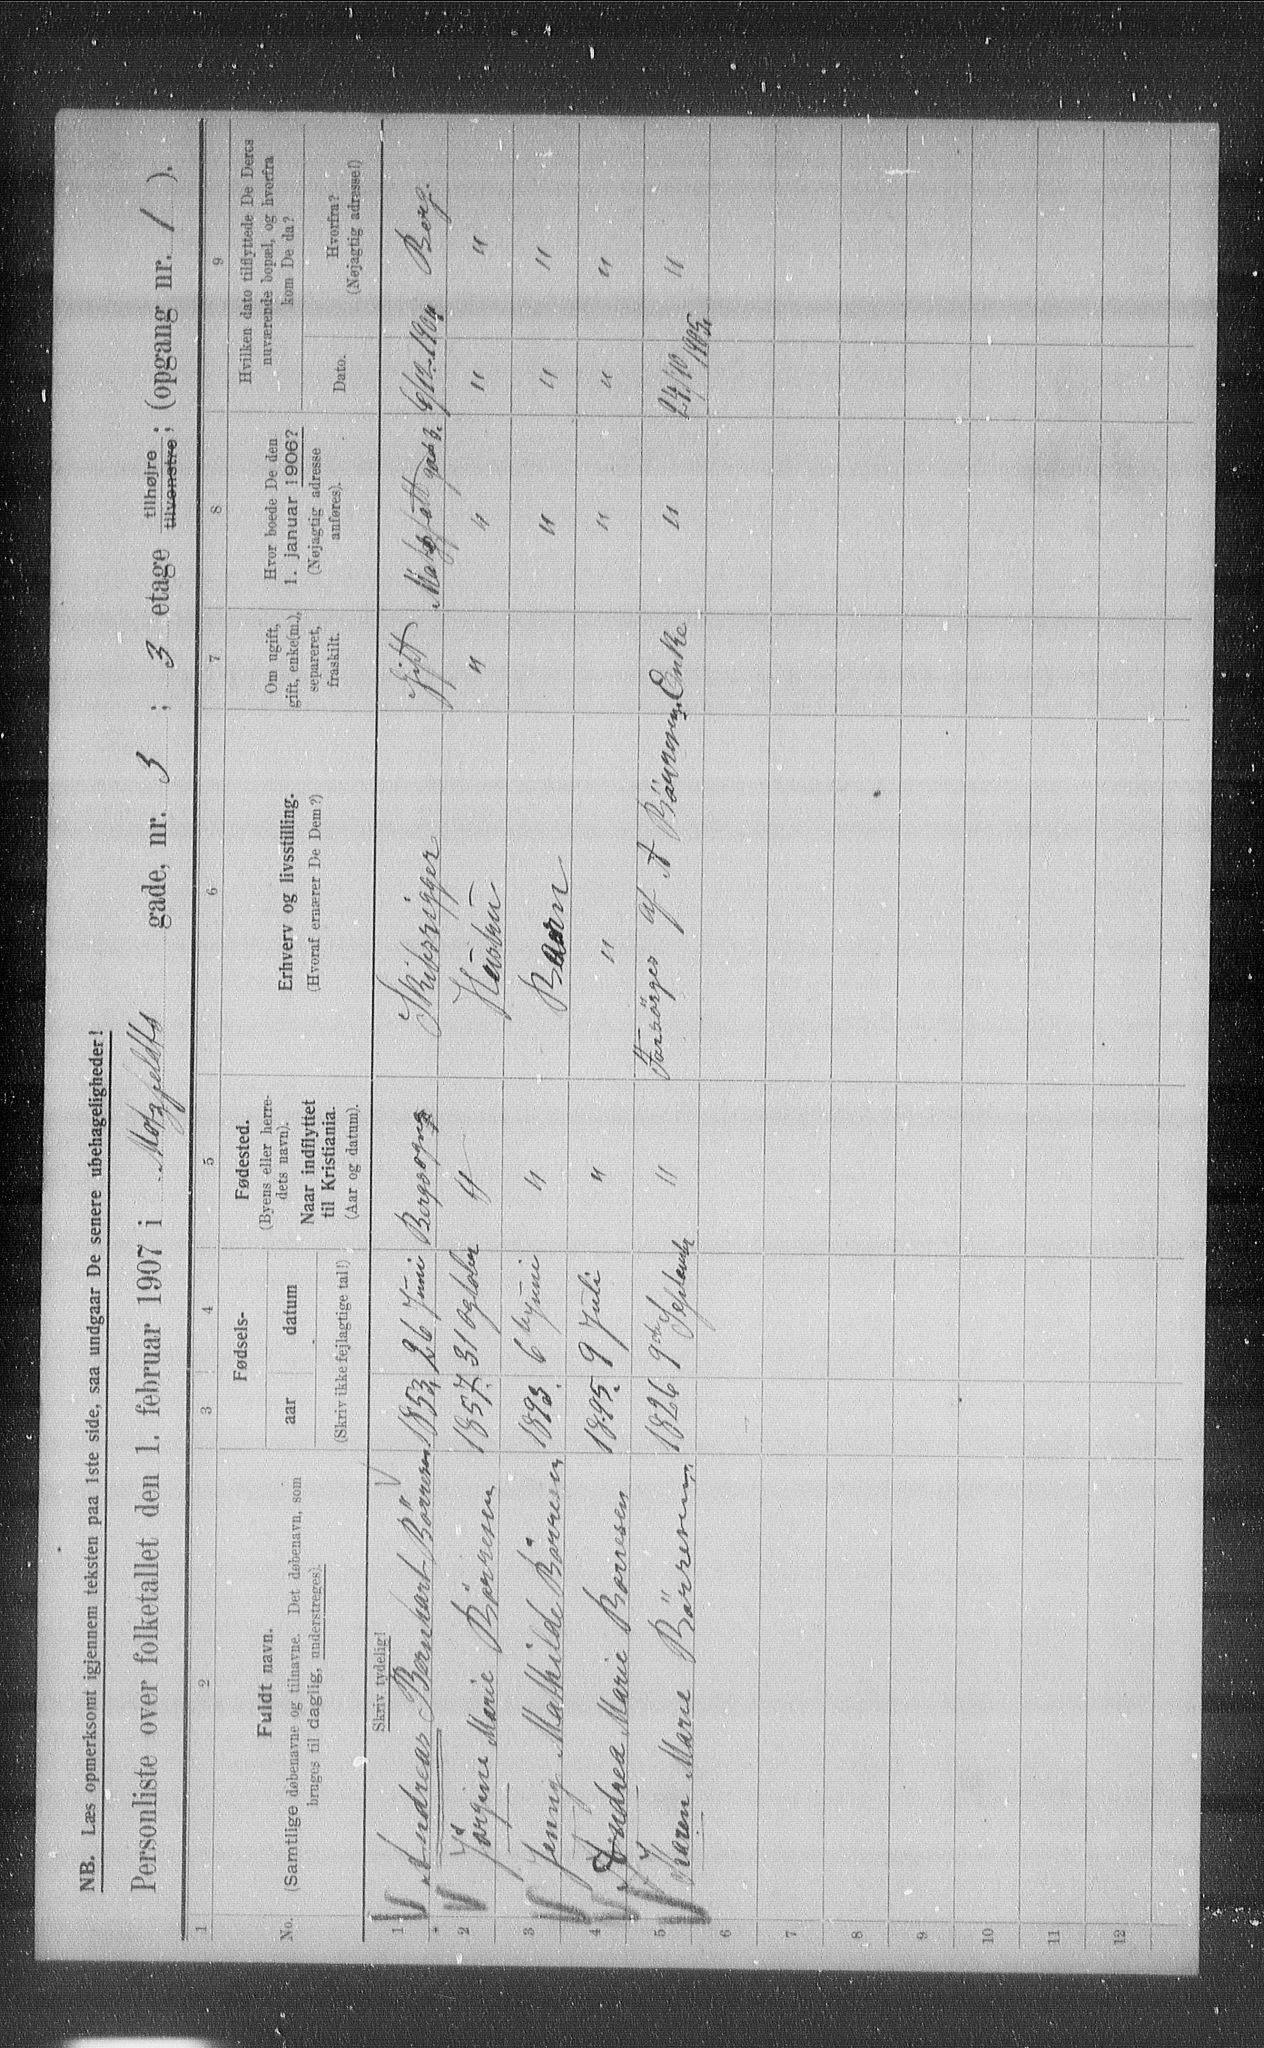 NB. Læs opmerksomt igjennem teksten paa 1ste side, saa undgaar De senere ubehageligheder!
Personliste over folketallet den 1. februar 1907 i Motzfeldts gade, nr. 3 ; 3 etage tilhøjre tilvenstre ; (opgang nr. 1 ).
1 2 3 4 5 6 7 8 9
No. Fuldt navn. (Samtlige døbenavne og tilnavne. Det døbenavn, som bruges til daglig, understreges).
Fødsels- aar datum (Skriv ikke fejlagtige tal!)
Fødested. (Byens eller herredets navn). Naar indflyttet til Kristiania. (Aar og datum).
Erhverv og livsstilling. (Hvoraf ernærer De Dem?)
Om ugift, gift, enke(m.), separeret, fraskilt.
Hvor boede De den 1. januar 1906? (Nøjagtig adresse anføres).
Hvilken dato tilflyttede De Deres nuværende bopæl, og hvorfra kom De da?
Dato. Hvorfra? (Nøjagtig adresse!)
Skriv tydelig!
1 Andreas Bernhart Börresen 1853 26 Juni Bergsogn Skibsrigger Gift 1904 Berg.
2 Jörgine Marie Börresen 1857 31 october " Hustru " " " "
3 Jenny Mathilde Börresen 1893. 6 Juni " Barn " " "
4 Andrea Marie Borresen 1895. 9 Juli " " " " "
5 Karen Marie Börresen 1826 9de September " Forsörges af A Börresen, Enke " 24/10 1905. "
6
7
8
9
10
11
12